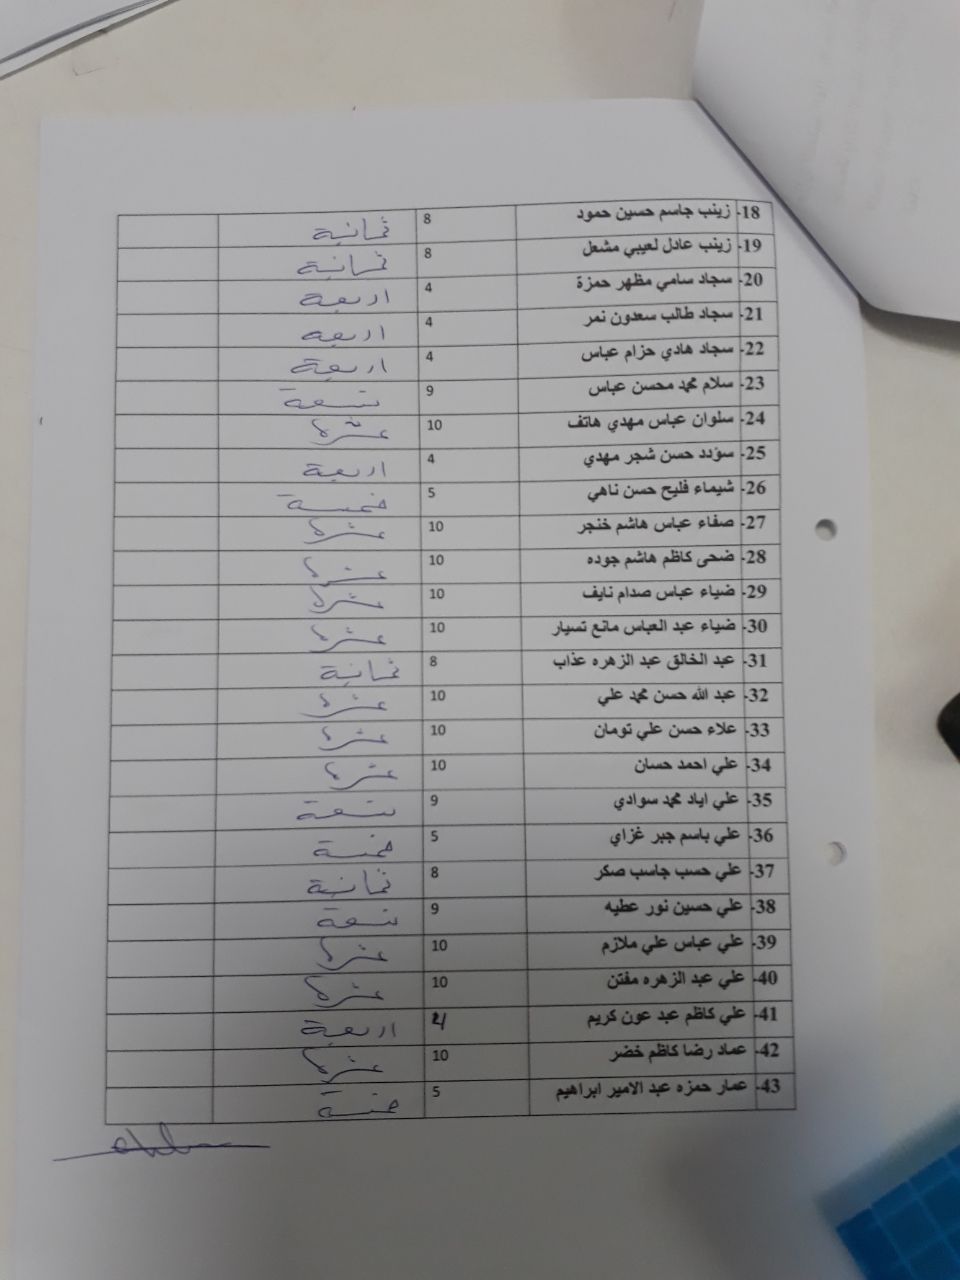 18- زينب جاسم حسين حمود 8 ثمانية
19- زينب عادل لعيبي مشعل 8 ثمانية
20- سجاد سامي مظهر حمزة 4 اربعة
21- سجاد طالب سعدون نمر 4 اربعة
22- سجاد هادي حزام عباس 4 اربعة
23- سلام محمد محسن عباس 9 تسعة
24- سلوان عباس مهدي هاتف 10 عشره
25- سؤدد حسن شجر مهدي 4 اربعة
26- شيماء فليح حسن ناهي 5 خمسة
27- صفاء عباس هاشم خنجر 10 عشره
28- ضحى كاظم هاشم جوده 10 عشره
29- ضياء عباس صدام نايف 10 عشره
30- ضياء عبد العباس مانع تسيار 10 عشره
31- عبد الخالق عبد الزهره عذاب 8 ثمانية
32- عبد الله حسن محمد علي 10 عشره
33- علاء حسن علي تومان 10 عشره
34- علي احمد حسان 10 عشره
35- علي اياد محمد سوادي 9 تسعة
36- علي باسم جبر غزاي 5 خمسة
37- علي حسب جاسب صكر 8 ثمانية
38- علي حسين نور عطيه 9 تسعة
39- علي عباس علي ملازم 10 عشره
40- علي عبد الزهره مفتن 10 عشره
41- علي كاظم عبد عون كريم 4 اربعة
42- عماد رضا كاظم خضر 10 عشره
43- عمار حمزه عبد الامير ابراهيم 5 خمسة